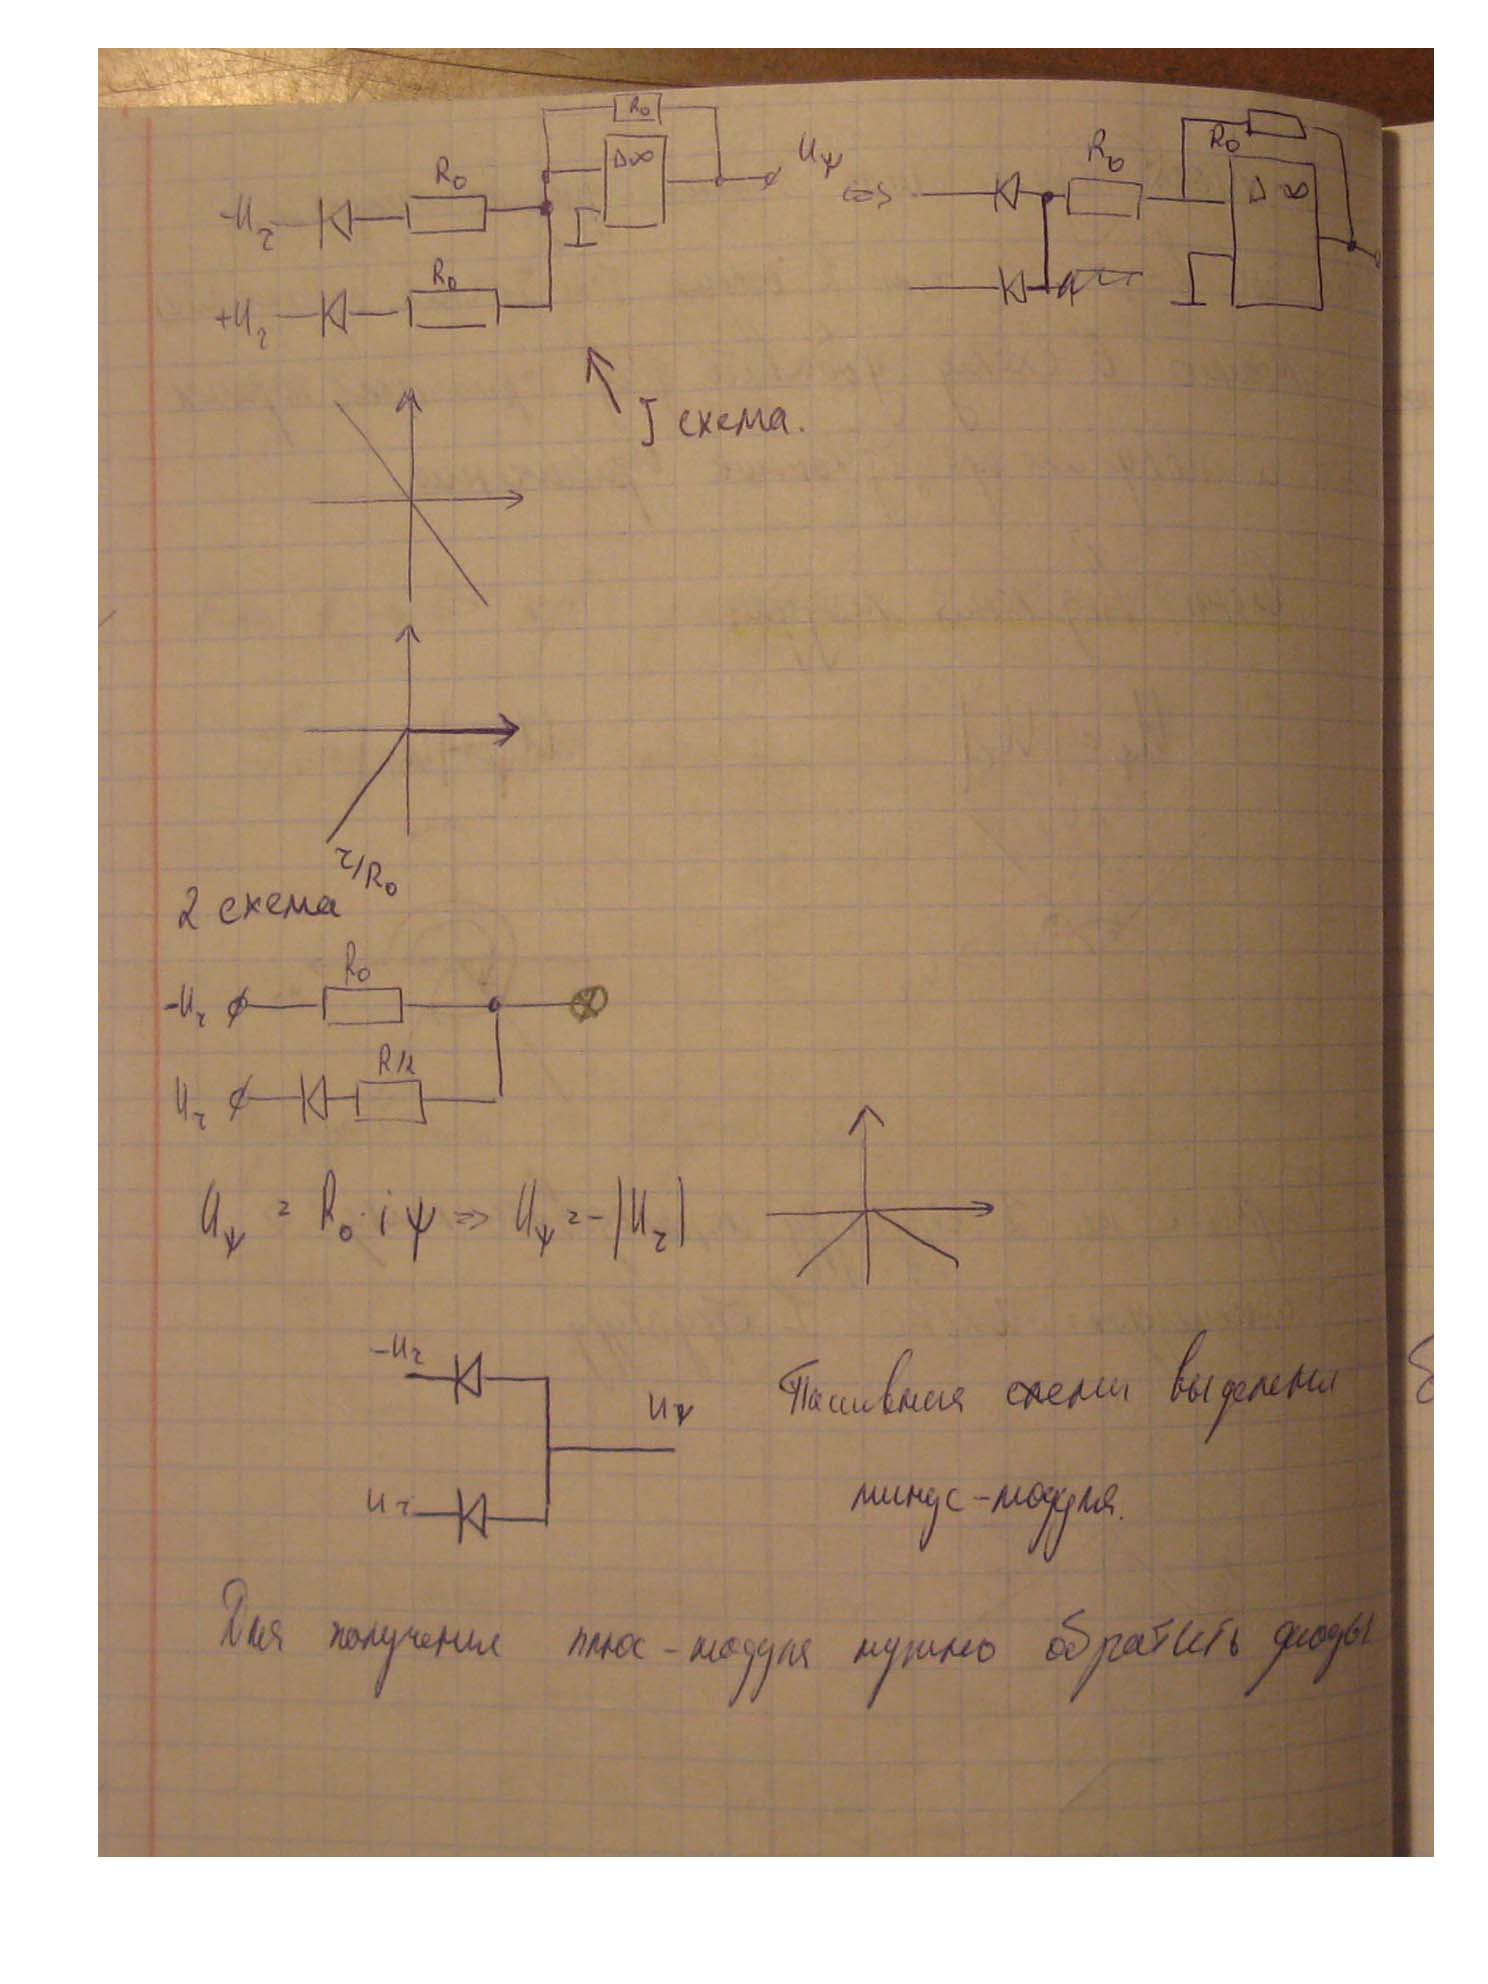 R₀
R₀ Uψ R₀ R₀
-Uτ D∞ ⇔ D ∞
R₀
+Uτ
I схема.
τ/R₀
2 схема
R₀
-Uτ
R/2
Uτ
Uψ = R₀·iψ => Uψ = -|Uτ|
-Uτ
Uψ Пассивная схема выделения
Uτ минус-модуля.
Для получения плюс-модуля нужно обратить диоды